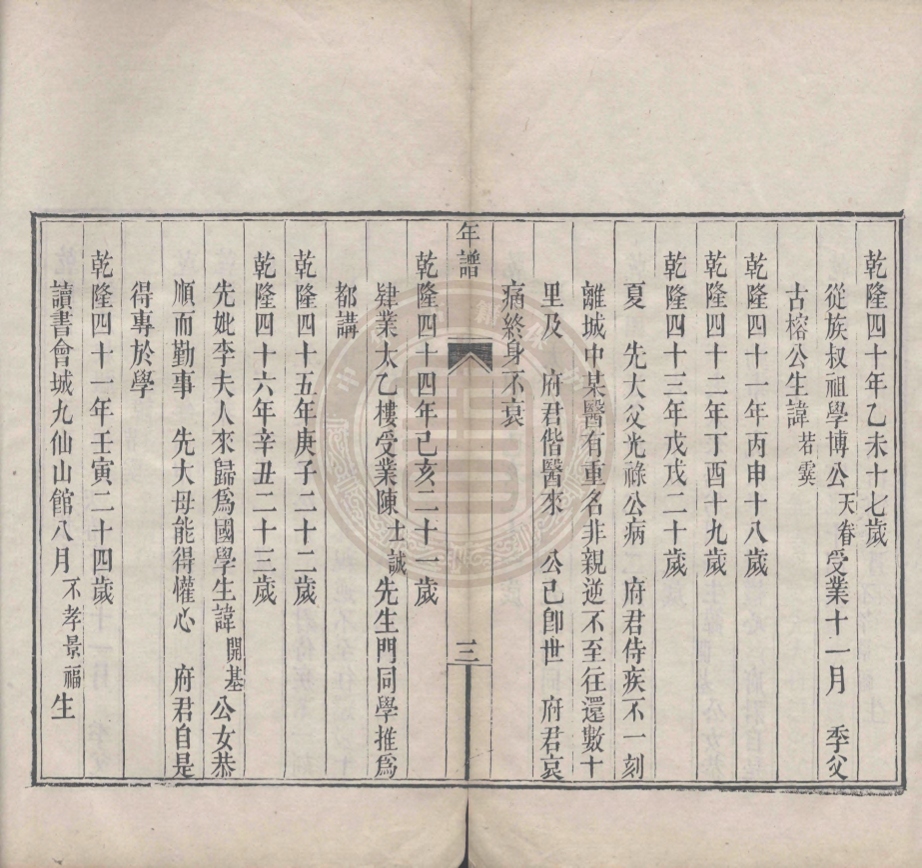 乾隆四十年乙未十七歲
從族叔祖學博公天眷受業十一月　季父
古榕公生諱若霙
乾隆四十一年丙申十八歲
乾隆四十二年丁酉十九歲
乾隆四十三年戊戌二十歲
夏　先大父光祿公病　府君侍疾不一刻
離城中某醫有重名非親逆不至往還數十
里及　府君偕醫來　公已卽世　府君哀
痛終身不衰
年譜
三
乾隆四十四年己亥二十一歲
肄業太乙樓受業陳士誠先生門同學推爲
都講
乾隆四十五年庚子二十二歲
乾隆四十六年辛丑二十三歲
先妣李夫人來歸爲國學生諱開基公女恭
順而勤事　先大母能得懽心　府君自是
得專於學
乾隆四十一年壬寅二十四歲
讀書會城九仙山館八月不孝景福生